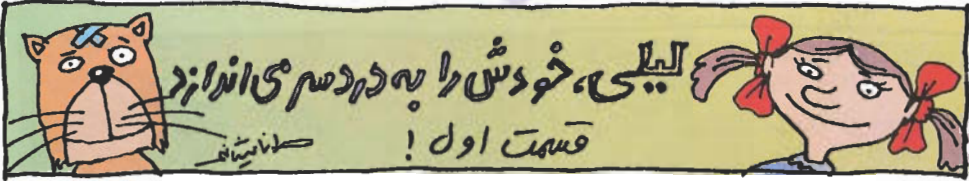 لیلی، خودش را به دردسر می‌اندازد
قسمت اول !